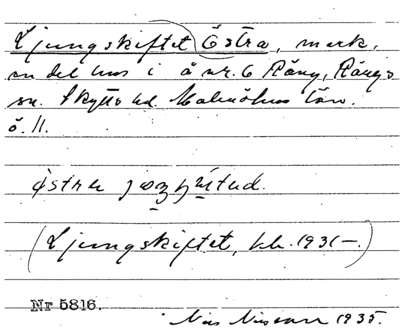 Ljungskiftet Östra, mark,
en del hus i å nr. 6 Räng, Rängs
sn. Skytts hd. Malmöhus län.
ö. 11.
östra
(Ljungskiftet, kb. 1931-.)
Nr 5816.
Nils Nilsson 1935.